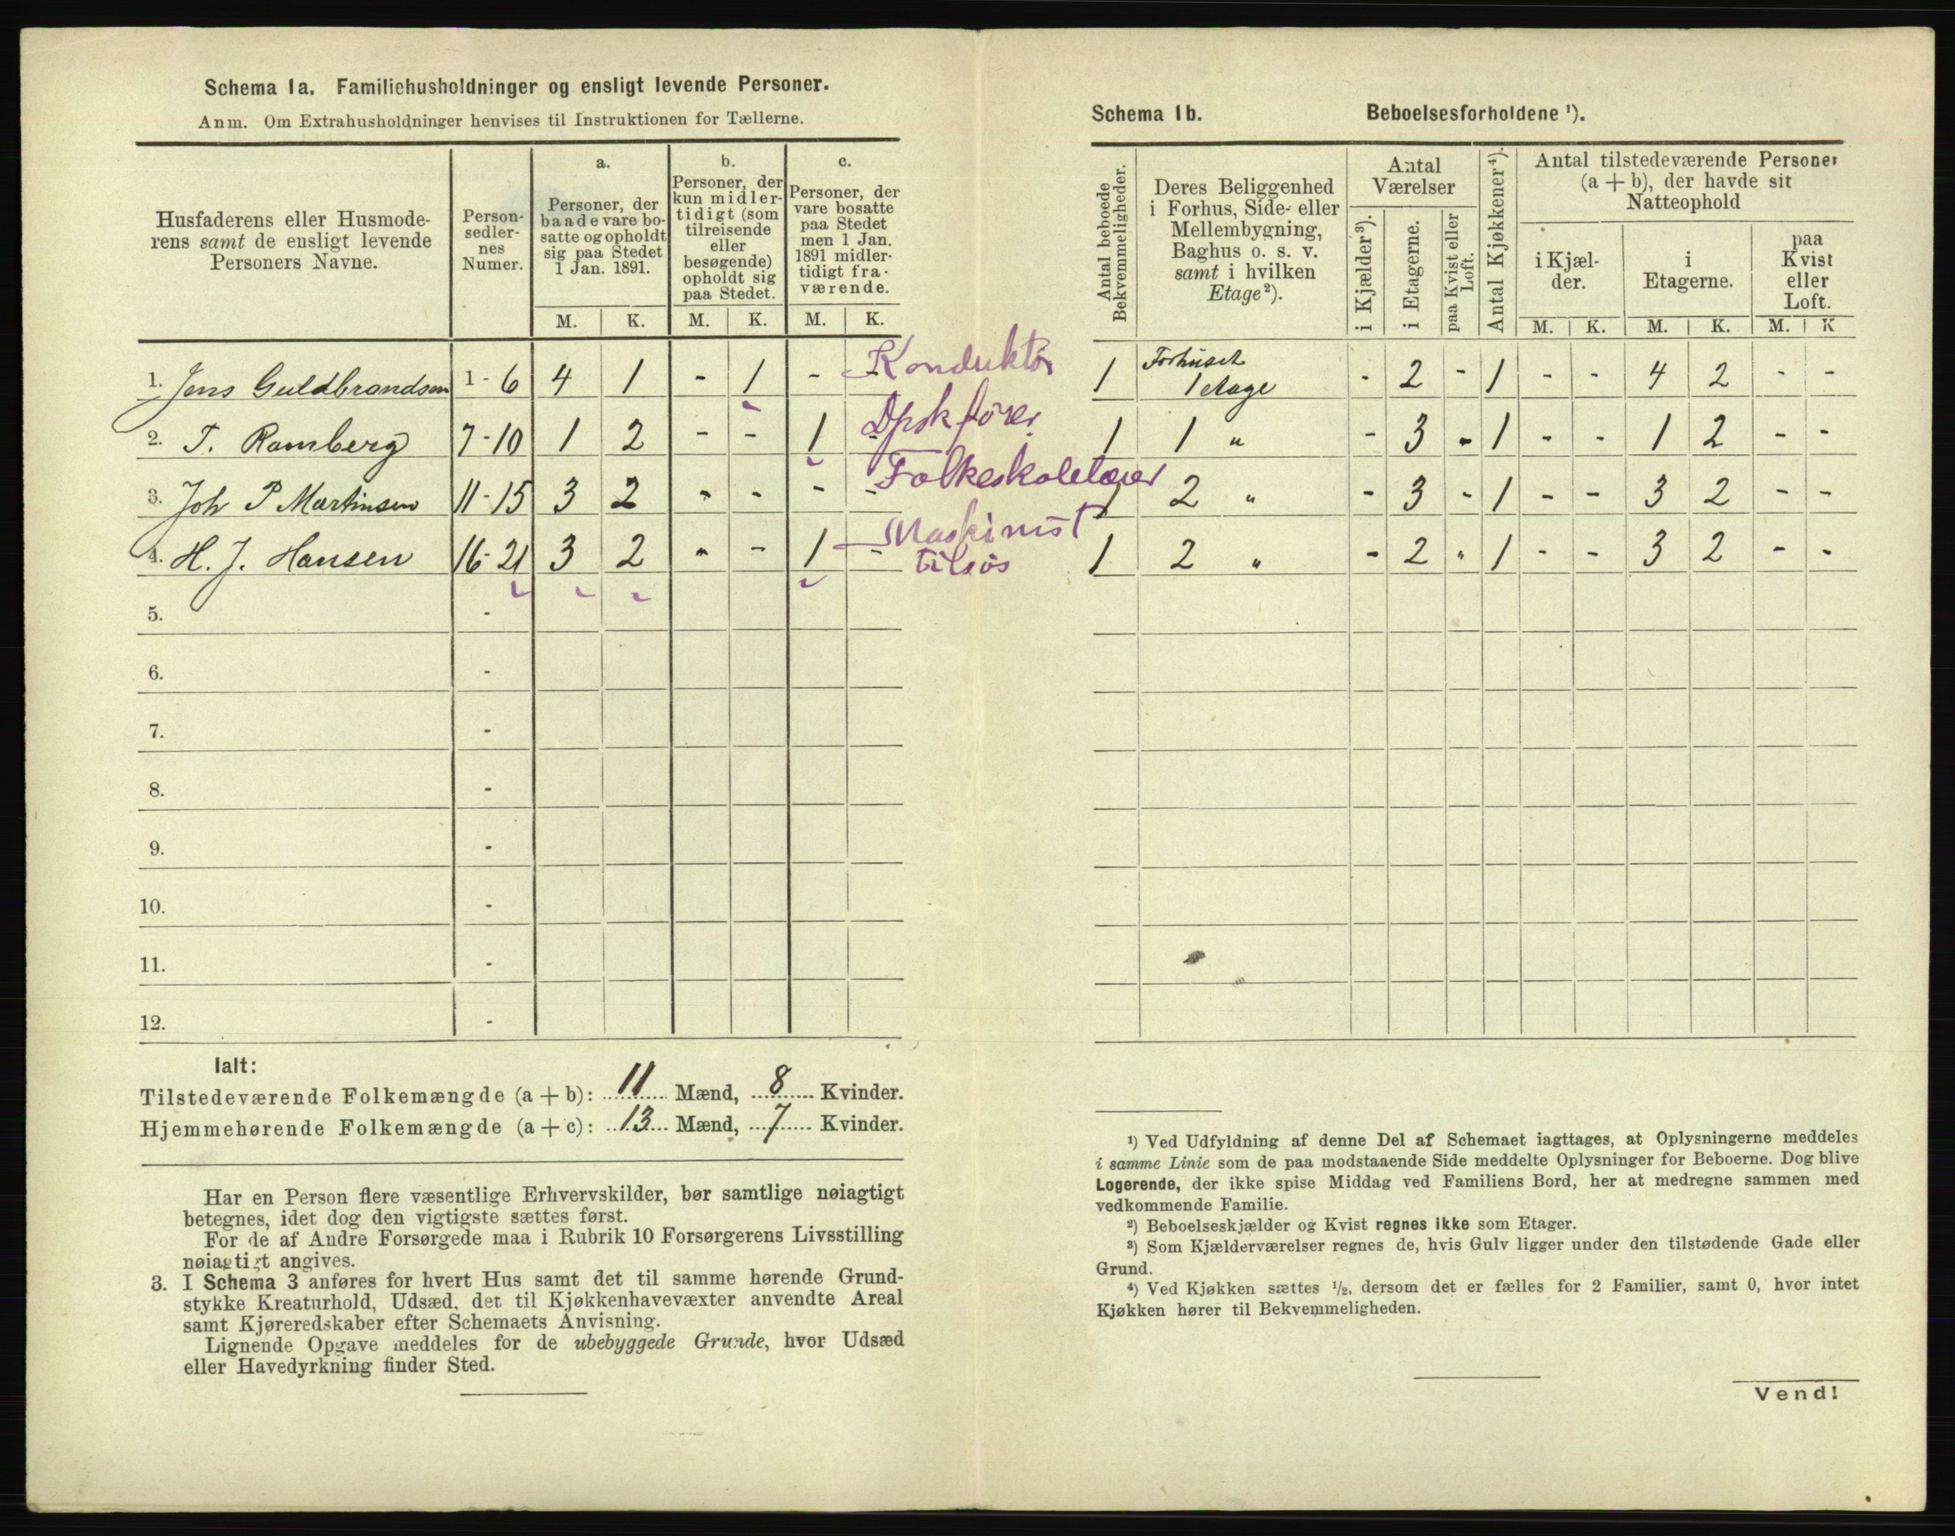 Schema 1a. Familiehusholdninger og ensligt levende Personer.
Anm. Om Extrahusholdninger henvises til Instruktionen for Tællerne.
Husfaderens eller Husmode-
rens samt de ensligt levende
Personers Navne.
Person-
sedler-
nes
Numer.
a.
Personer, der
baade vare bo-
satte og opholdt
sig paa Stedet
1 Jan. 1891.
b.
Personer, der
kun midler-
tidigt (som
tilreisende
eller
besøgende)
opholdt sig
paa Stedet.
c.
Personer, der
vare bosatte
paa Stedet
men 1 Jan.
1891 midler-
tidigt fra-
værende.
M. K. M. K. M. K.
1. Jens Guldbrandsen 1-6 4 1 - 1 - - Konduktør
2. T. Ramberg 7-10 1 2 - - 1 - Dpskfører
3. Joh P Martinsen 11-15 3 2 - - - - Folkeskolelærer
4. H. J. Hansen 16-21 3 2 - - 1 - Maskinist
tilsøs
5. -
6. -
7. -
8. -
9. -
10. -
11. -
12. -
Ialt:
Tilstedeværende Folkemængde (a + b): 11 Mænd, 8 Kvinder.
Hjemmehørende Folkemængde (a + c): 13 Mænd, 7 Kvinder.
Har en Person flere væsentlige Erhvervskilder, bør samtlige nøiagtigt
betegnes, idet dog den vigtigste sættes først.
For de af Andre Forsørgede maa i Rubrik 10 Forsørgerens Livsstilling
nøiagtigt angives.
3. I Schema 3 anføres for hvert Hus samt det til samme hørende Grund-
stykke Kreaturhold, Udsæd, det til Kjøkkenhavevæxter anvendte Areal
samt Kjøreredskaber efter Schemaets Anvisning.
Lignende Opgave meddeles for de ubebyggede Grunde, hvor Udsæd
eller Havedyrkning finder Sted.
Schema 1b. Beboelsesforholdene ¹).
Antal beboede
Bekvemmeligheder.
Deres Beliggenhed
i Forhus, Side- eller
Mellembygning,
Baghus o. s. v.
samt i hvilken
Etage²).
Antal
Værelser
i Kjælder³).
i Etagerne.
paa Kvist eller
Loft.
Antal Kjøkkener⁴).
Antal tilstedeværende Personer
(a + b), der havde sit
Natteophold
i Kjæl-
der.
i
Etagerne.
paa
Kvist
eller
Loft.
M. K. M. K. M. K
1 Forhuset
1 etage - 2 - 1 - - 4 2 - -
1 1 " - 3 - 1 - - 1 2 - -
1 2 " - 3 - 1 - - 3 2 - -
1 2 " - 2 " 1 - - 3 2 - -
¹) Ved Udfyldning af denne Del af Schemaet iagttages, at Oplysningerne meddeles
i samme Linie som de paa modstaaende Side meddelte Oplysninger for Beboerne. Dog blive
Logerende, der ikke spise Middag ved Familiens Bord, her at medregne sammen med
vedkommende Familie.
²) Beboelseskjælder og Kvist regnes ikke som Etager.
³) Som Kjælderværelser regnes de, hvis Gulv ligger under den tilstødende Gade eller
Grund.
⁴) Ved Kjøkken sættes ½, dersom det er fælles for 2 Familier, samt 0, hvor intet
Kjøkken hører til Bekvemmeligheden.
Vend!